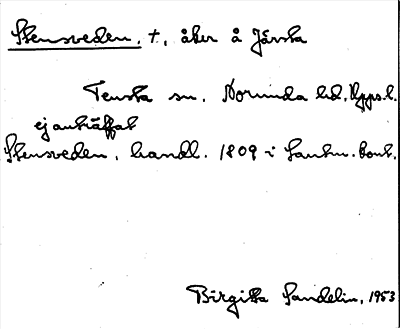 Stensveden, t., åker å Järsta
Tensta sn. Norunda hd. Upps.l.
ej anträffat
Stensveden, handl. 1809 i Lantm. kont.
Birgitta Sandelin, 1953